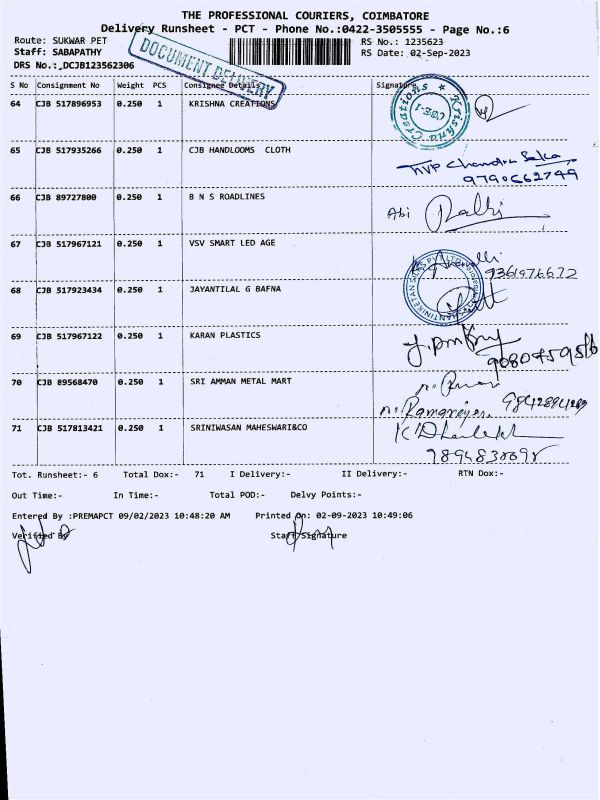 THE PROFESSIONAL COURIERS, COIMBATORE
Delivery Runsheet - PCT - Phone No.:0422-3505555 - Page No.:6
Route: SUKWAR PET
RS No.: 1235623
Staff: SABAPATHY
RS Date: 02-Sep-2023
DRS No.:,DCJB123562306
DOCUMENT DELIVERY
S No Consignment No Weight PCS Consignee Details Signature
64 CJB 517896953 0.250 1 KRISHNA CREATIONS
Krishna Creations
CBE-1
65 CJB 517935266 0.250 1 CJB HANDLOOMS CLOTH
Chandra
9790662749
66 CJB 89727800 0.250 1 B N S ROADLINES
Abi
67 CJB 517967121 0.250 1 VSV SMART LED AGE
9361976672
68 CJB 517923434 0.250 1 JAYANTILAL G BAFNA
69 CJB 517967122 0.250 1 KARAN PLASTICS
70 CJB 89568470 0.250 1 SRI AMMAN METAL MART
71 CJB 517813421 0.250 1 SRINIWASAN MAHESWARI&CO
Tot. Runsheet:- 6 Total Dox:- 71 I Delivery:- II Delivery:- RTN Dox:-
Out Time:- In Time:- Total POD:- Delvy Points:-
Entered By :PREMAPCT 09/02/2023 10:48:20 AM Printed On: 02-09-2023 10:49:06
Verified By Staff Signature